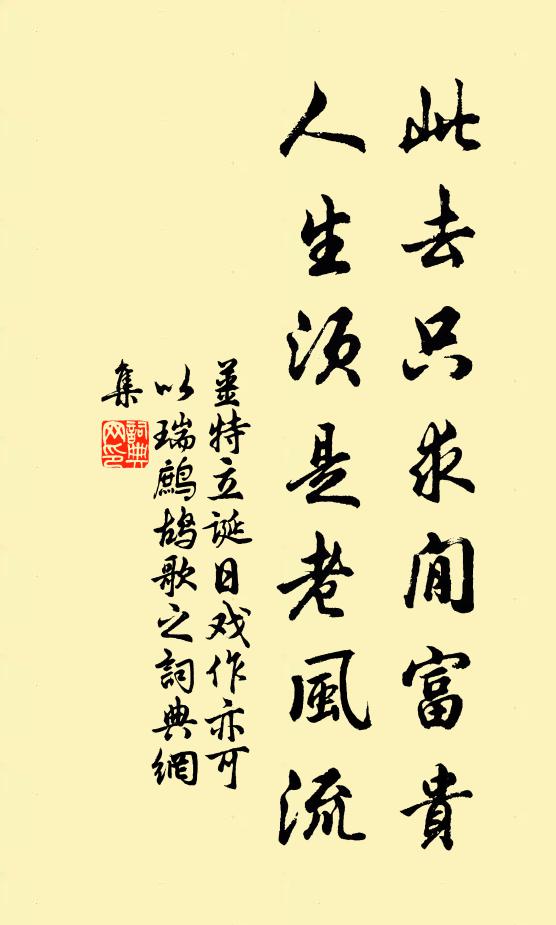 此去只求閒富貴
人生須是老風流
姜特立誕日戏作亦可
以瑞鷓鴣歌之詞典網
集
詞典
网印